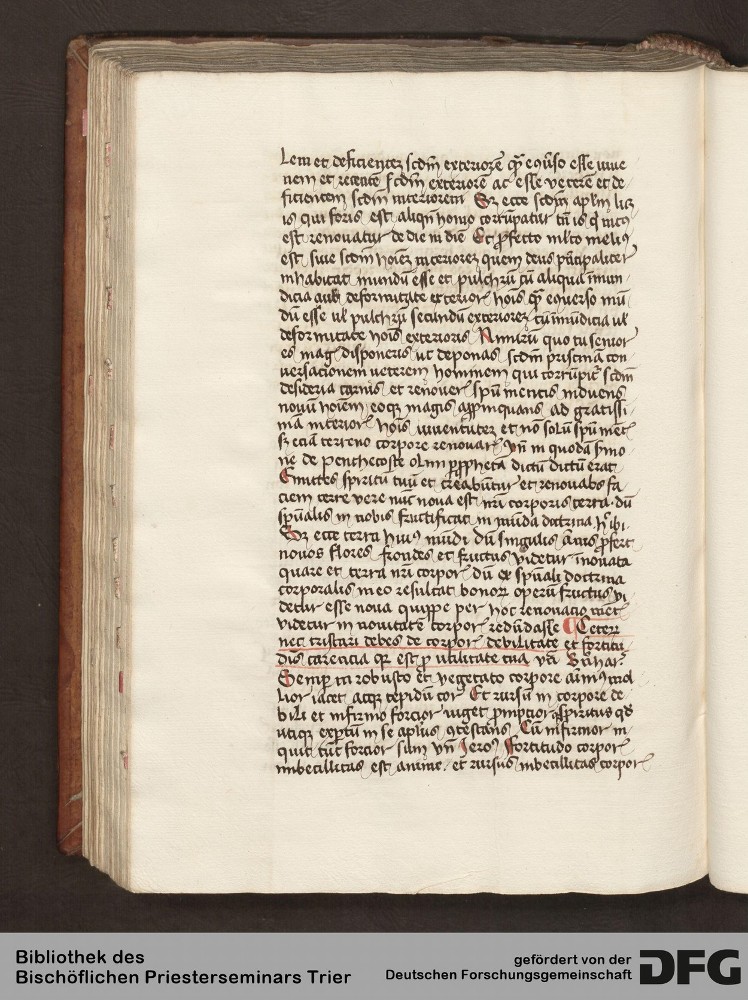 lem et deficientez scdm exteriorē q̄ eqūso esse iuue
nem et recentē scdm exteriorē ac esse veterē et de
ficientem scdm interiorem Sz ecce scdm aplm licz
is qui foris est aliqn homo corrūpatur tn̄ is q̇ intꝰ
est renouatur de die in diē Et ꝓfecto mlto meliꝰ
est siue scdm hoiez interiorez quem deus pncipaliter
inhabitat mundū esse et pulchrū cū aliqua imun
dicia aut deformitate exterior hois q̄ eqūerso mū
dū esse ul pulchrū secundū exteriorez cū imūdicia ul
deformitate hois exterioris Nimirū quo tu senior
es mag disponeris ut deponas scdm pristinā con
uersacionem veterem hominem qui corrūpit scdm
desideria carnis et renouer spū mentis induens
nouū hoiem eoqz magis appinquans ad gratissi
mā interior hois iuuentutez et nō solū spū ment
sz eciā terreno corpore renouar vn̄ in quodā smo
ne de penthecoste olim ꝓpheta dictū dictū erat
Emittes spiritū tuū et creabūtur et renouabs fa
ciem terre vere nūc noua est nri corporis terra dū
spūalis in nobis fructificat in mūda doctrina h ibi
Sz ecce terra huiꝰ mūdi dū singulis ānis ꝓfert
nouos flores frondes et fructus videtur inouata
quare et terra nri corpor dū ex spūali doctrina
corporalis in eo resultat bonor operū fructus vi
detur esse noua quippe per hoc renouacio mēt
videtur in nouitatē corpor redūdasse Ceter
nec tristari debes de corpor debilitate et fortitu
dīs carencia q̄ est ꝓ utilitate tua vn̄ Bnhar
Semp in robusto et vegetato corpore aimꝰ mol
lior iacet atqz tepidū cor Et rursū in corpore de
bili et infirmo forcior viget ꝓmptior spiritus qd
utiqz exptū in se aplus ꝯtestans Cū infirmor in
quit tūc forcior sum vn̄ Jeroꝰ Fortitudo corpor
imbecillitas est anime et rursus inbecillitas corpor
Bibliothek des
Bischöflichen Priesterseminars Trier
gefördert von der
Deutschen Forschungsgemeinschaft
DFG